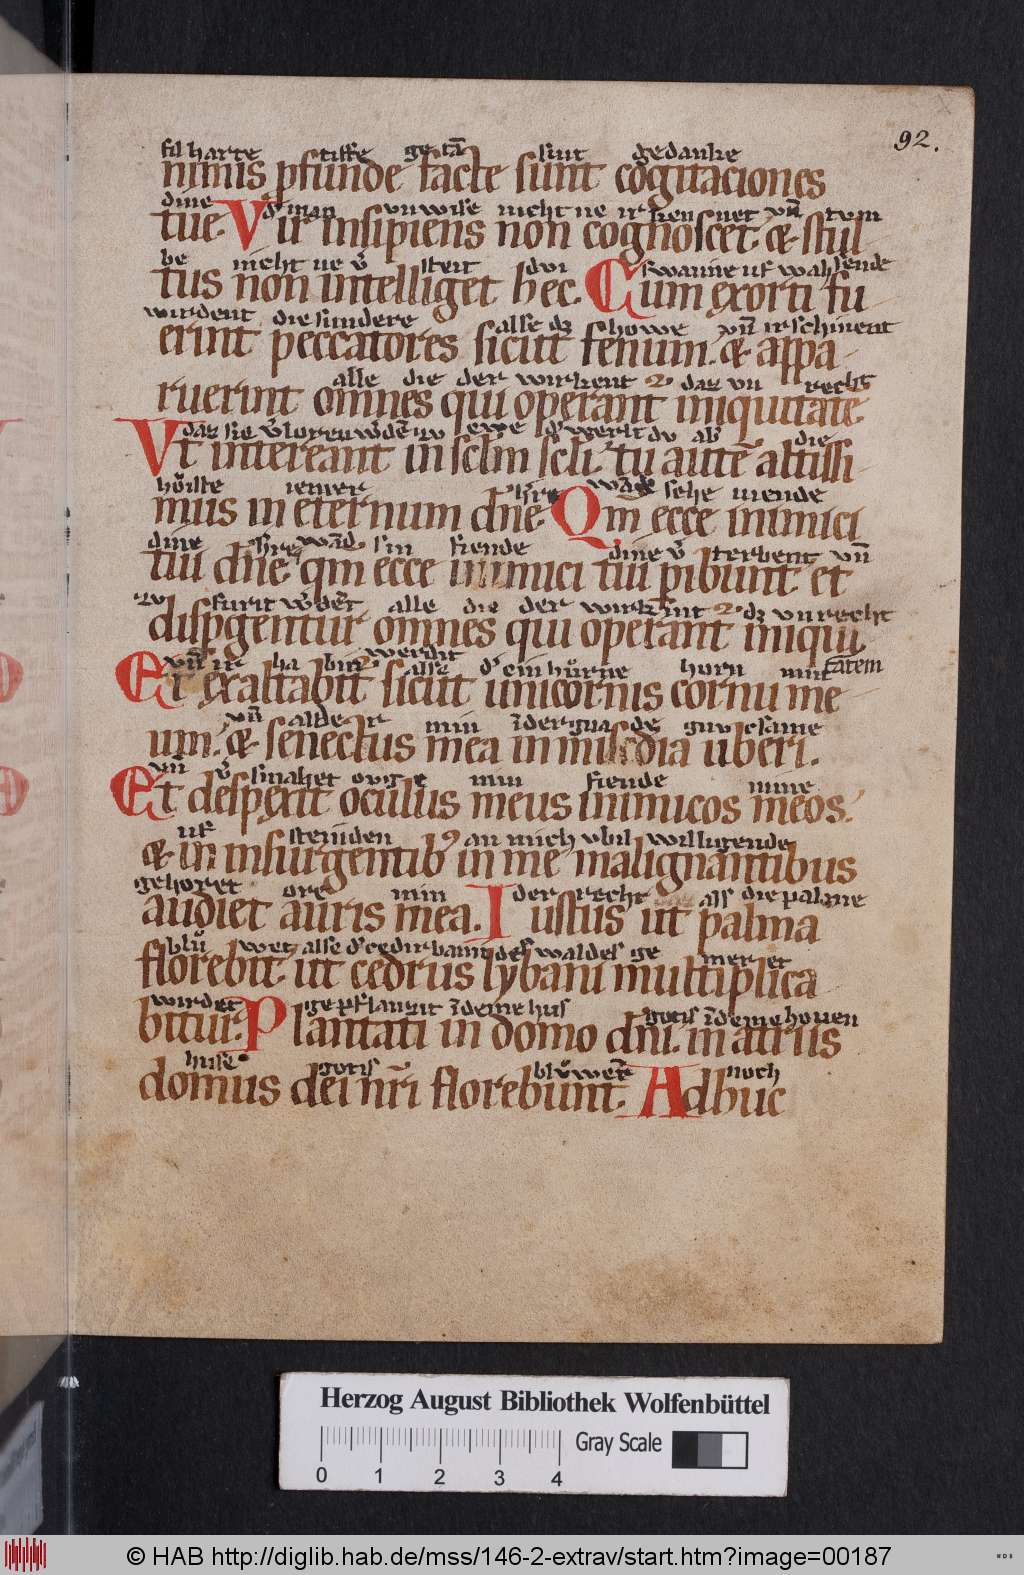 92.
fil harte tiffe getā sint gedanke
nimis pfunde facte sunt cogitaciones
dine d' man vnwise nicht ne irken net vn̄ tvm
tue. Vir insipiens non cognoscet. & stul-
be nicht ne v̓ steit dvi swanne uf wahsende
tus non intelliget hec. Cum exorti fu
wirdent die sundere alse dz howe vn̄ irschinent
erint peccatores sicut fenum. & appa-
alle die der wirkent daz vn recht
ruerint omnes qui operant iniquitatē.
daz sie v̓lorn w̓dēt iv ewe d' werlt dv ab' die
Vt intereant in sclm scli. tu autē altissi-
hoiste iemer h're wāde sehe niende
mus in eternum dn̄e. Qm ecce inimici
dine h're wād sin fiende dine v̓ sterbent vn̄
tui dn̄e. qm ecce inimici tui pibunt. et
zv furit w̓dēt alle die der wirkint dz vnrecht
dispgentur omnes qui operant iniqui
vn̄ ir ha bin werdit alse d' einhurne horn min tatem
Et exaltabit sicut unicornis cornu me
vn̄ alder min īder gnasde guvclsame
um. & senectus mea in miscdia uberi.
vn̄ v̓ smahet ovige min fiende mine
Et despexit oculus meus inimicos meos.
uf steniden an mich vbil willigende
& in insurgentib' in me malignantibus
gehoret ore min der recht als die palme
audiet auris mea. Iustus ut palma
blu wet alse d' cedirbaim des waldes ge meret
florebit. ut cedrus lybani multiplica
wirdet gepflanzit īdeme hus gotis īdeme houen
bitur. Plantati in domo dn̄i. in atriis
huse gotis bluwēt noch
domus dei nr̄i florebunt. Adhuc
Herzog August Bibliothek Wolfenbüttel
Gray Scale
0 1 2 3 4
© HAB http://diglib.hab.de/mss/146-2-extrav/start.htm?image=00187